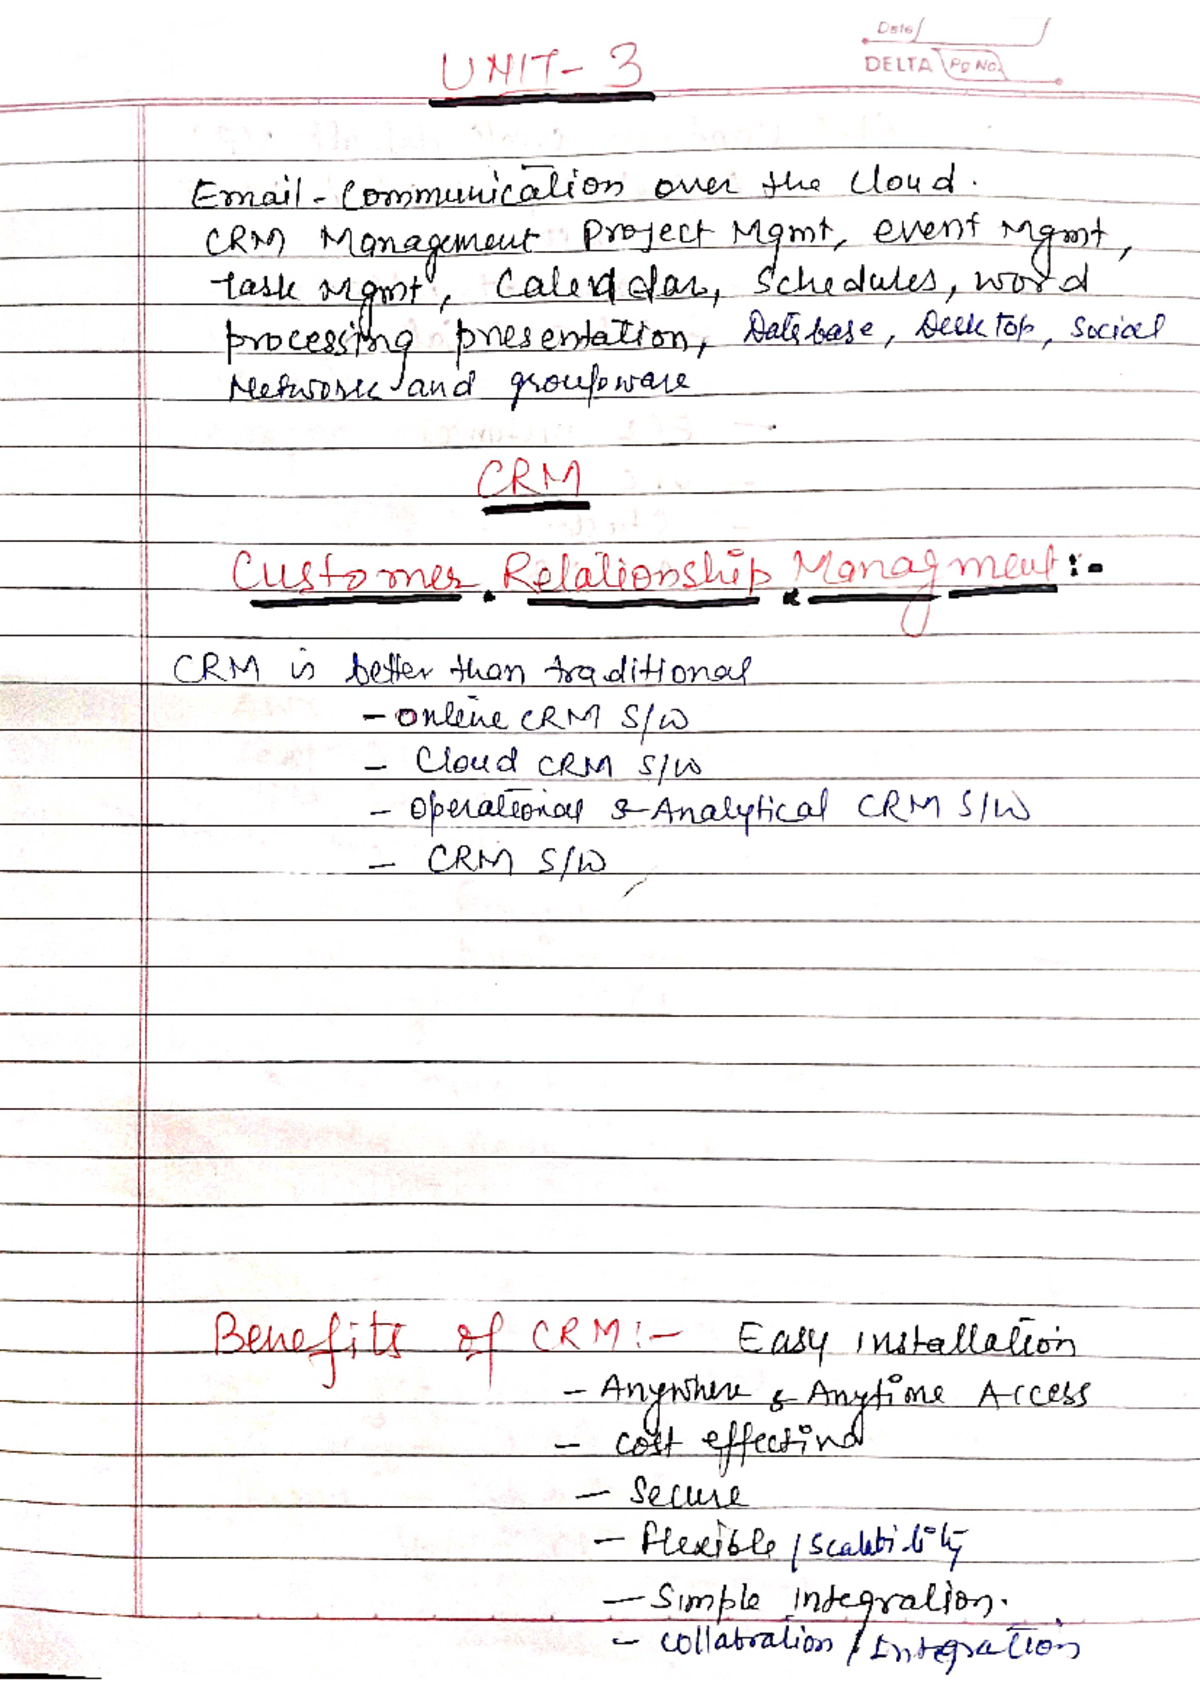 Date
DELTA Pg No.
UNIT-3
Email-Communication over the Cloud.
CRM Management Project Mgmt, event Mgmt,
task Mgmt, Calendar, Schedules, word
processing presentation, Database, Desktop, Social
Network and groupware
CRM
Customer Relationship Managment:-
CRM is better than traditional
- online CRM S/W
- Cloud CRM S/W
- Operational & Analytical CRM S/W
- CRM S/W
Benefits of CRM:- Easy installation
- Anywhere & Anytime Access
- cost effectind
- Secure
- flexible / scalability
- Simple integration.
- collabration / Integration